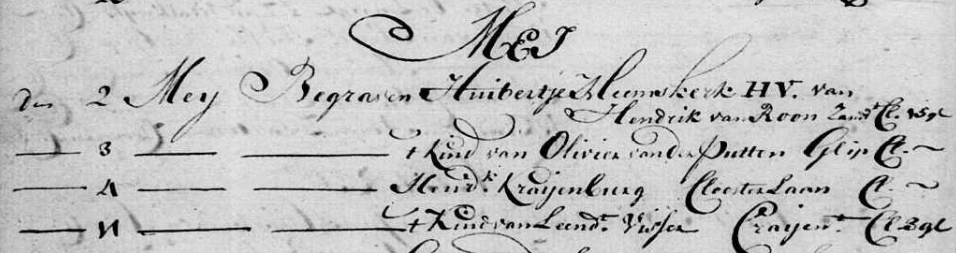 MEJ
den 2 Mey Begraven Huibertje Heemskerk HV. van
Hendrik van Roon Zandt Cl. 15gl
3 't Kind van Olivier van der Putten Glip Cl. ~
4 Hendk. Kraijenburg Clooster Laan Cl. ~
't Kind van Leendt. Visser Craijent. Cl. 3gl